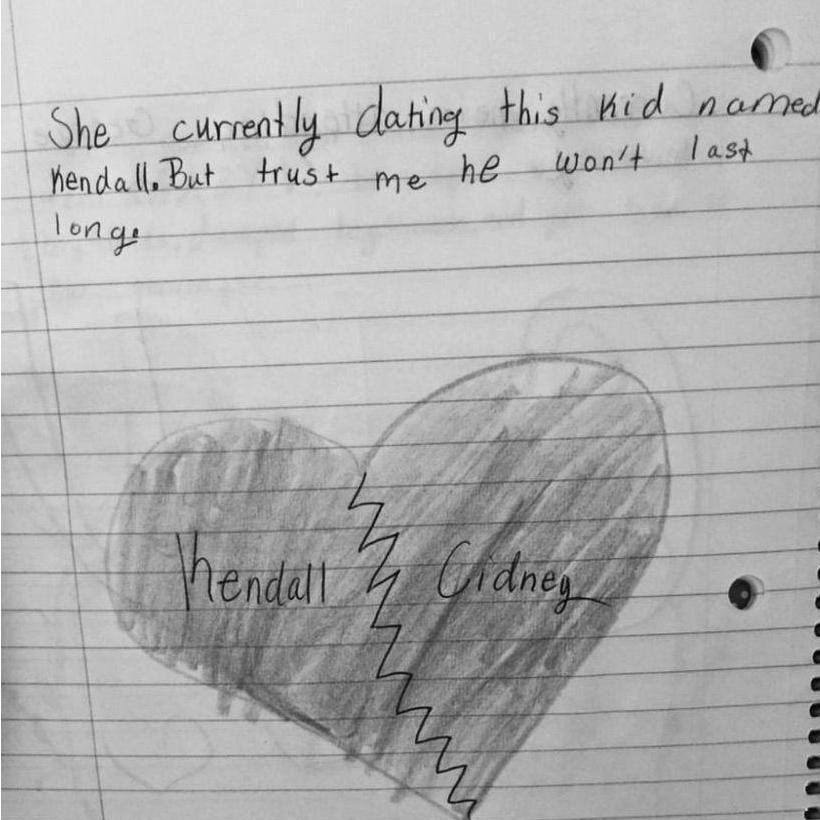 She currently dating this kid named
Kendall. But trust me he won't last
long.
Kendall Cidney